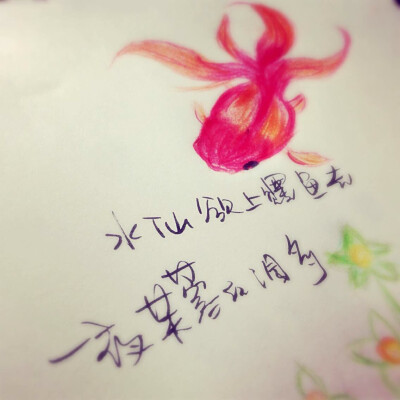 水仙欲上鲤鱼去
一夜芙蓉红泪多